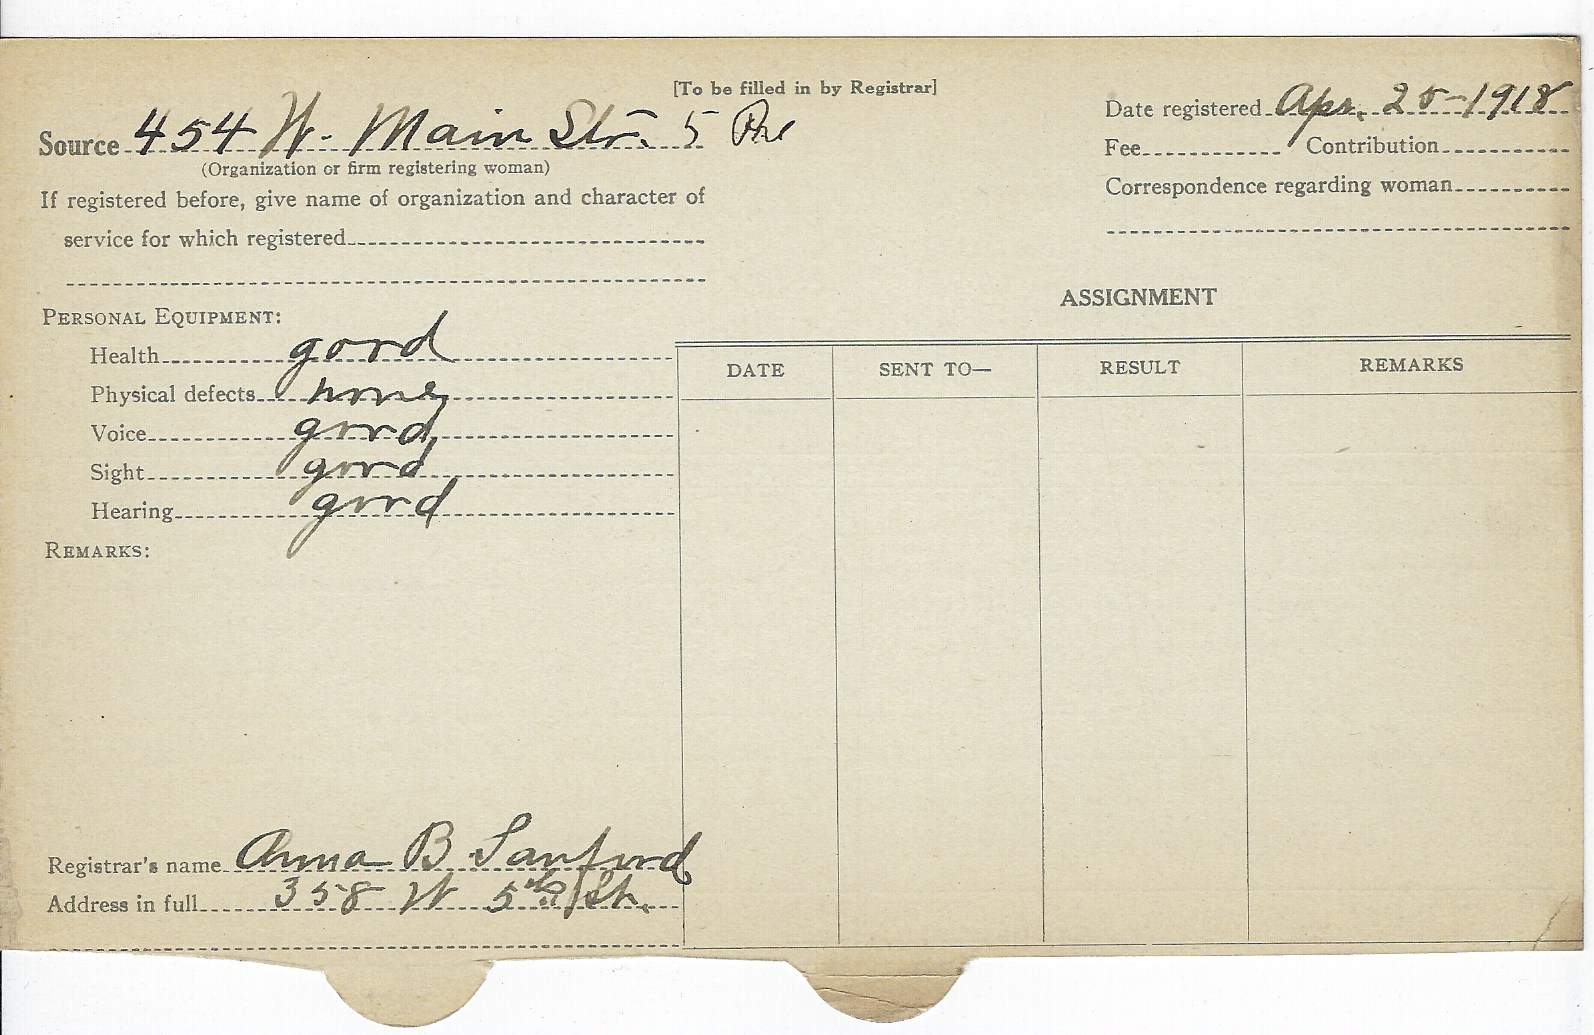 [To be filled in by Registrar]
Source 454 W. Main Str. 5
(Organization or firm registering woman)
Date registered Apr. 25-1918
Fee Contribution
If registered before, give name of organization and character of
service for which registered
Correspondence regarding woman
ASSIGNMENT
PERSONAL EQUIPMENT:
Health good
Physical defects none
Voice good
Sight good
Hearing good
REMARKS:
DATE SENT TO— RESULT REMARKS
Registrar's name Anna B Sanford
Address in full 358 W 5th St.